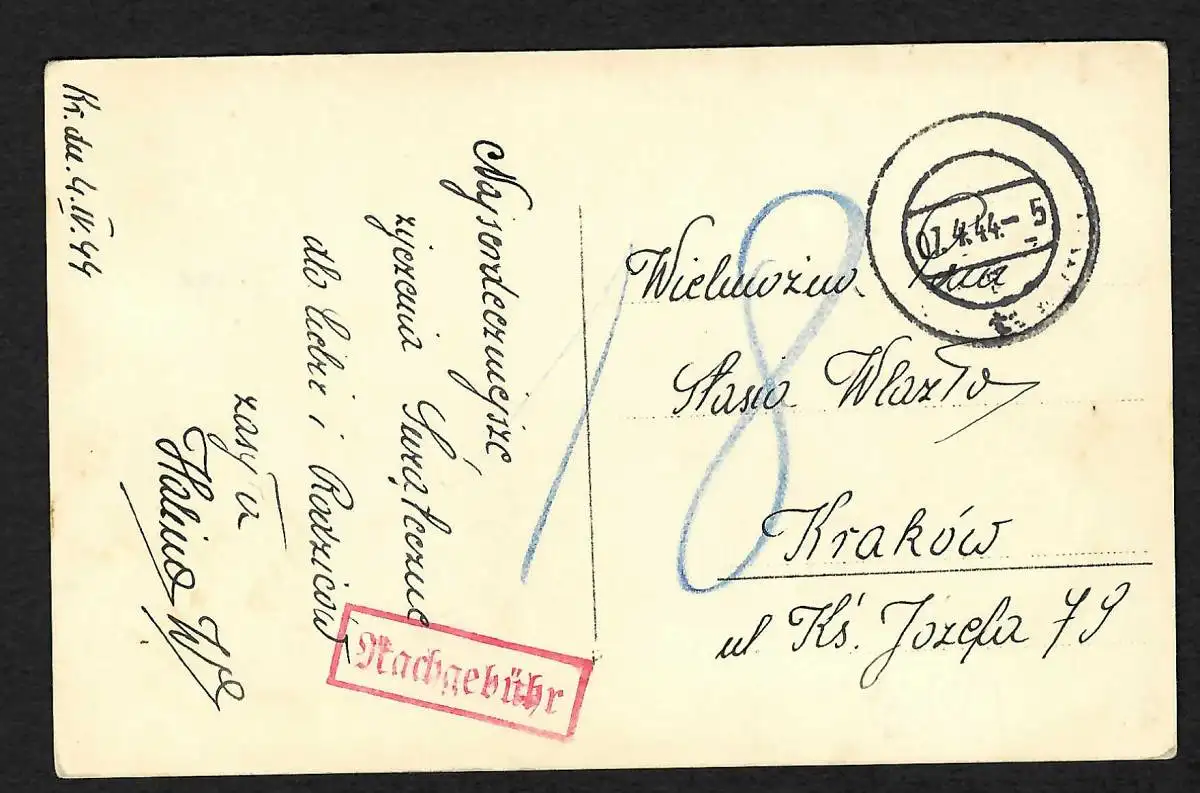 Kr. dn. 4.IV.44
Najserdeczniejsze
życzenia Świąteczne
dla Ciebie i Rodziców
zasyła
Halina
Nachgebühr
18
07.4.44.- 5
Wielmożna
Stasia Wlazło
Kraków
ul Ks. Józefa 79